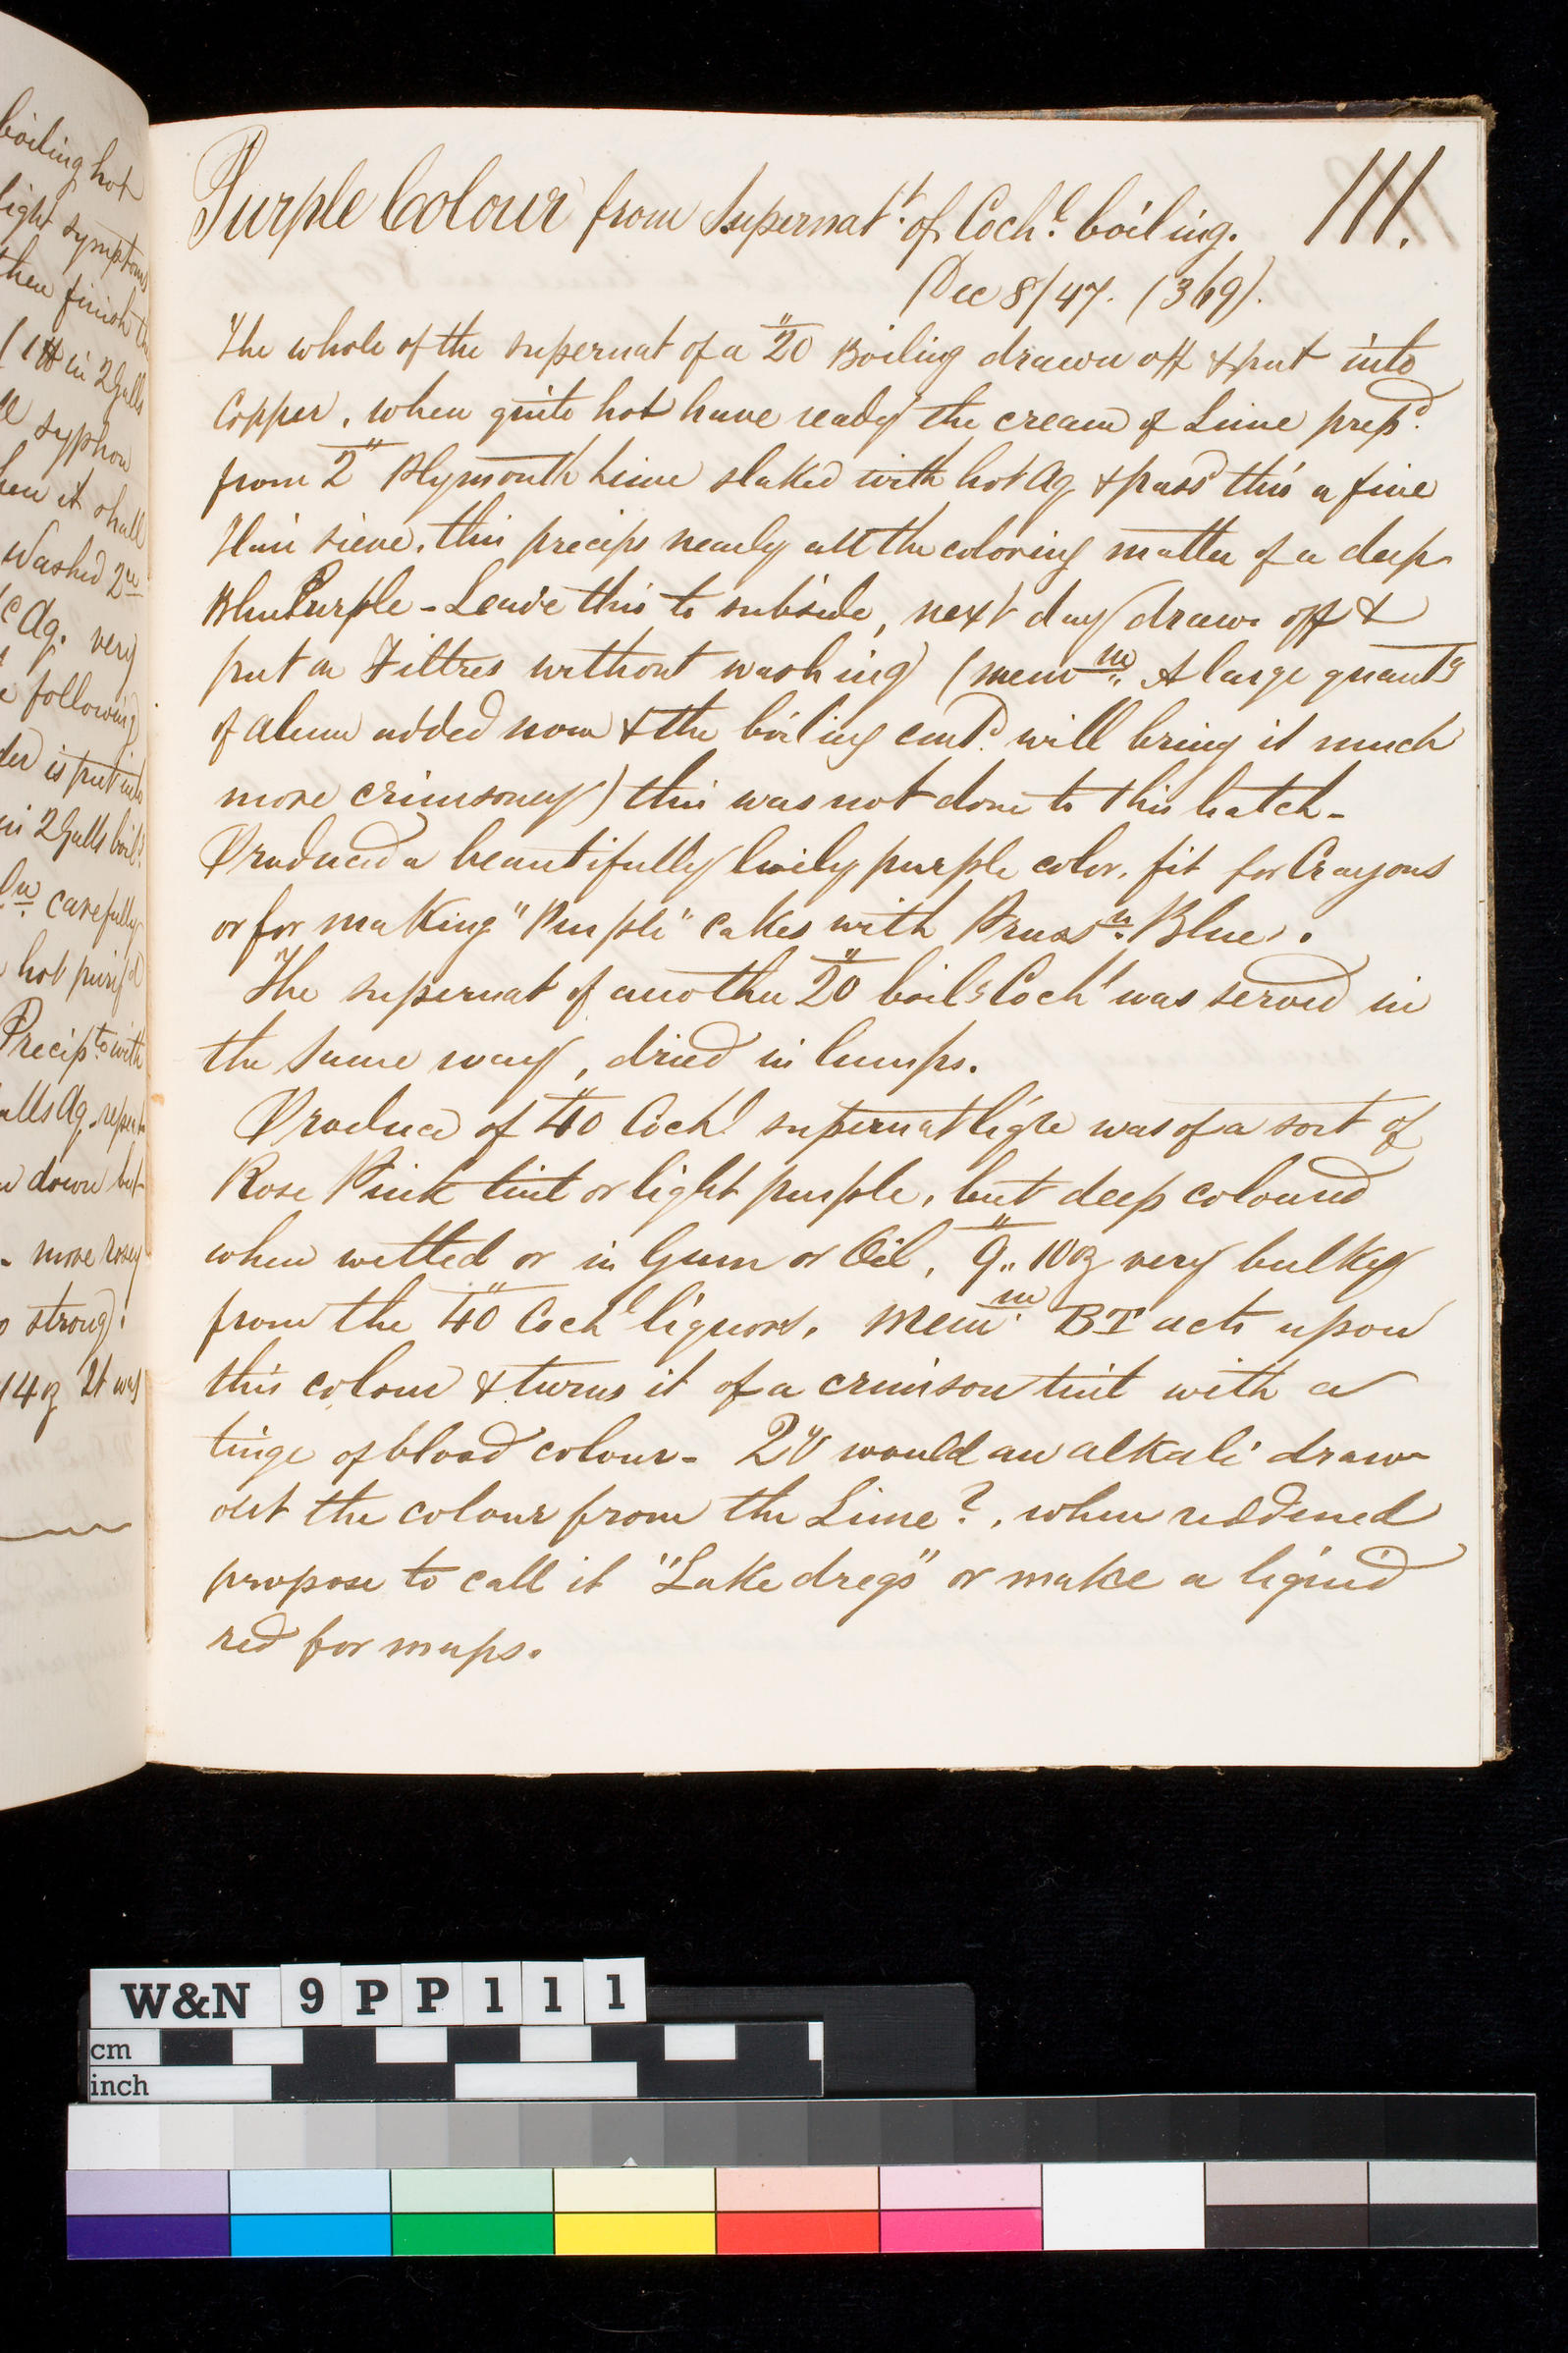 boiling hot
light symptoms
then finish the
(1 ℔ in 2 Galls
syphon
it shall
Washed 2ce
Aq. very
following
is put into
in 2 Galls boilg
carefully
hot purifd
Precipte with
Aq. repeat
down but
more rosey
strong.
14 oz It was
Purple Colour from Supernatt. of Cochl. boiling. 111.
Dec 8/47. (369).
The whole of the supernat of a 20" Boiling drawn off & put into
Copper, when quite hot have ready the cream of Lime prepd.
from 2" Plymouth Lime slaked with hot Aq & passd this a fine
Hair sieve, this precips nearly all the coloring matter of a deep
Blue Purple - Leave this to subside, next day draw off &
put on Filtres without washing (memm.. A large quanty
of alum added now & the boiling contd. will bring it much
more crimsoney) this was not done to this batch -
Produced a beautifully lively purple color, fit for Crayons
or for making "Purple" cakes with Prussn. Blue.
The supernat of another 20" boilg Cochl was served in
the same way, dried in lumps.
Produce of 40" Cochl supernat liqre was of a sort of
Rose Pink tint or light purple, but deep coloured
when wetted or in Gum or Oil, 9".. 10 oz very bulky
from the 40" Cochl liquors. Memm. BT acts upon
this colour & turns it of a crimson tint with a
tinge of blood colour - Qy would an alkali draw
out the colour from the Lime?, when reddened
propose to call it "Lake dregs" or make a liquid
red for maps.
W&N 9PP111
cm
inch